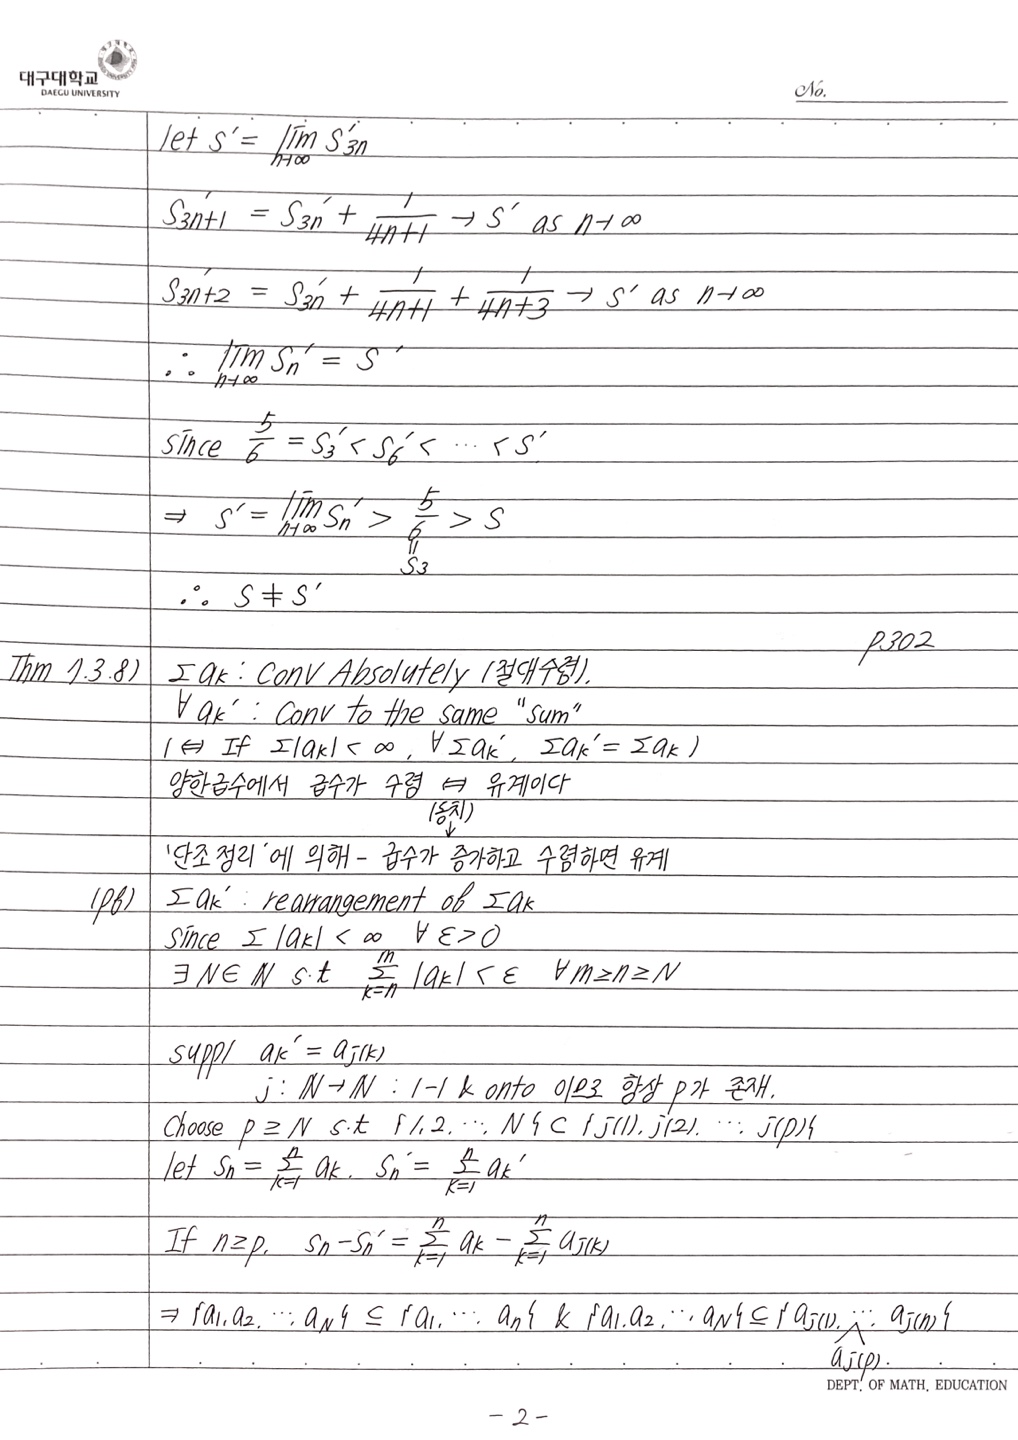 대구대학교
DAEGU UNIVERSITY
No.
let S' = lim_{n→∞} S'_{3n}
S'_{3n+1} = S'_{3n} + 1/(4n+1) → S' as n→∞
S'_{3n+2} = S'_{3n} + 1/(4n+1) + 1/(4n+3) → S' as n→∞
∴ lim_{n→∞} S_n' = S'
since 5/6 = S_3' < S_6' < ⋯ < S'
⇒ S' = lim_{n→∞} S_n' > 5/6 > S
=
S_3
∴ S ≠ S'
P302
Thm 7.3.8) Σa_k : Conv Absolutely (절대수렴).
∀a_k' : Conv to the same "Sum"
(⇔ If Σ|a_k| < ∞, ∀Σa_k', Σa_k' = Σa_k)
양항급수에서 급수가 수렴 ⇔ 유계이다
(동치)
↓
'단조정리'에 의해 - 급수가 증가하고 수렴하면 유계
(pf) Σa_k' : rearrangement of Σa_k
since Σ|a_k| < ∞ ∀ε>0
∃N∈ℕ s.t Σ_{k=n}^{m} |a_k| < ε ∀m≥n≥N
supp/ a_k' = a_{j(k)}
j : ℕ→ℕ : 1-1 & onto 이므로 항상 p가 존재.
Choose p ≥ N s.t {1,2,⋯,N} ⊂ {j(1), j(2), ⋯, j(p)}
let S_n = Σ_{k=1}^{n} a_k, S_n' = Σ_{k=1}^{n} a_k'
If n≥p, S_n - S_n' = Σ_{k=1}^{n} a_k - Σ_{k=1}^{n} a_{j(k)}
⇒ {a_1, a_2, ⋯, a_N} ⊆ {a_1, ⋯, a_n} & {a_1, a_2, ⋯, a_N} ⊆ {a_{j(1)}, ⋯, a_{j(n)}}
a_{j(p)}.
DEPT. OF MATH. EDUCATION
- 2 -